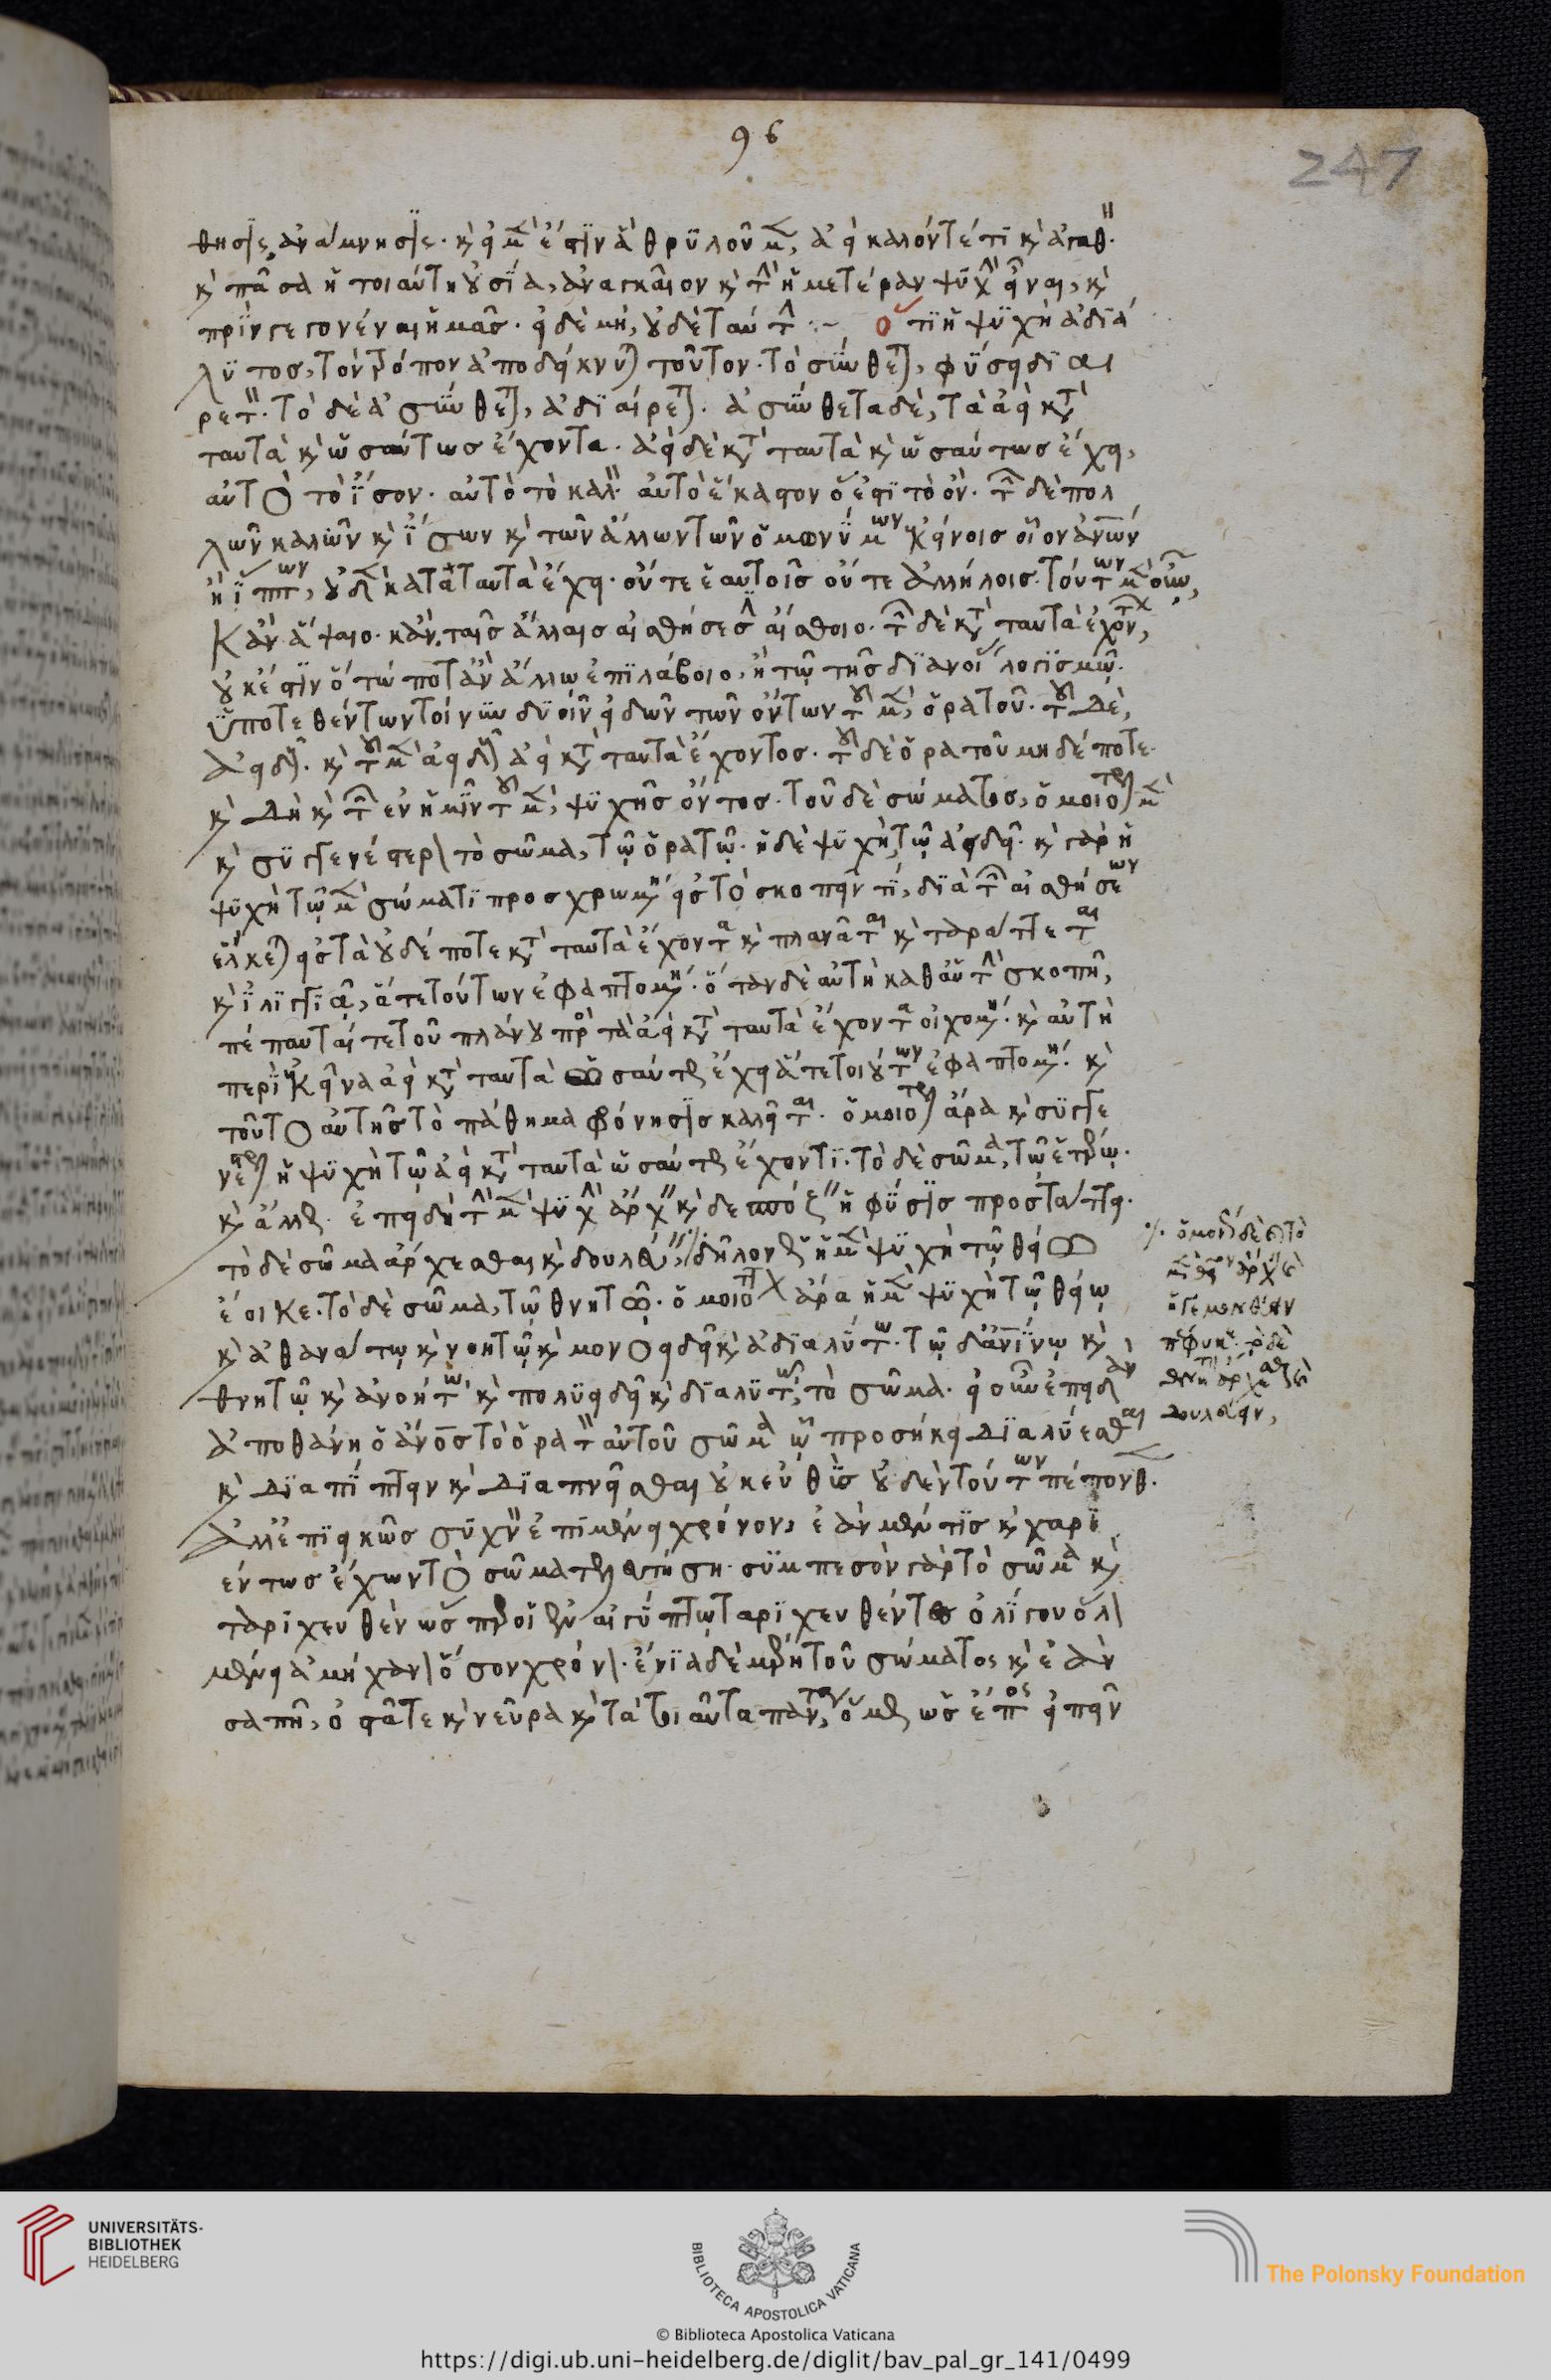 96
247
θησις ἀνάμνησις. κ εἰ μὲν ἔστιν ἃ θρυλοῦμεν, ἀεὶ καλόν τέ τι κ ἀγαθὸν.
κ πᾶσα ἡ τοιαύτη οὐσία, ἀναγκαῖον κ τὴν ἡμετέραν ψυχὴν εἶναι, κ
πρὶν γεγονέναι ἡμᾶς. εἰ δὲ μὴ, οὐδὲ ταύτην :~ Ὅτι ἡ ψυχὴ ἀδιά
λυτος, τὸν τρόπον ἀποδείκνυται τοῦτον. τὸ σύνθετον, φύσει διαι
ρετὸν. τὸ δὲ ἀσύνθετον, ἀδιαίρετον. ἀσύνθετα δὲ, τὰ ἀεὶ κατὰ
ταυτὰ κ ὡσαύτως ἔχοντα. ἀεὶ δὲ κατὰ ταυτὰ κ ὡσαύτως ἔχει,
αὐτὸ τὸ ἴσον. αὐτὸ τὸ καλὸν. αὐτὸ ἕκαστον ὅ ἐστι τὸ ὄν. τῶν δὲ πολ
λῶν καλῶν κ ἴσων κ τῶν ἄλλων τῶν ὁμωνύμων ἐκείνοις οἷον ἀνων
ἢ ἵππων, οὐδὲν κατὰ ταυτὰ ἔχει. οὔτε ἑαυτοῖς οὔτε ἀλλήλοις. τούτων μὲν οὖν,
κἂν ἅψαιο. κἂν ταῖς ἄλλαις αἰσθήσεσιν αἴσθοιο. τῶν δὲ κατὰ ταυτὰ ἐχόντων,
οὐκ ἔστιν ὅτω ποτ' ἂν ἄλλω ἐπιλάβοιο, ἢ τῶ τῆς διανοίας λογισμῶ.
ὑποτεθέντων τοίνυν δυοῖν εἰδῶν τῶν ὄντων τοῦ μὲν, ὁρατοῦ. τοῦ δὲ,
ἀειδοῦς. κ τοῦ μὲν ἀειδοῦς ἀεὶ κατὰ ταυτὰ ἔχοντος. τοῦ δὲ ὁρατοῦ μηδέποτε.
κ δὴ κ τῶν ἐν ἡμῖν τοῦ μὲν, ψυχῆς ὄντος. τοῦ δὲ σώματος, ὁμοιότερον μὲν
κ συγγενέστερον τὸ σῶμα, τῶ ὁρατῶ. ἡ δὲ ψυχὴ, τῶ ἀειδεῖ. κ γὰρ ἡ
ψυχὴ τῶ μὲν σώματι προσχρωμένη εἰς τὸ σκοπεῖν τι, διὰ τῶν αἰσθήσεων
ἕλκεται εἰς τὰ οὐδέποτε κατὰ ταυτὰ ἔχοντα κ πλανᾶται κ ταράττεται
κ ἰλιγγιᾶ, ἅτε τούτων ἐφαπτομένη. ὅταν δὲ αὐτὴ καθ' αὑτὴν σκοπῆ,
πέπαυταί τε τοῦ πλάνου πρὸς τὰ ἀεὶ κατὰ ταυτὰ ἔχοντα οἰχομένη. κ αὐτὴ
περὶ ἐκεῖνα ἀεὶ κατὰ ταυτὰ ὡσαύτως ἔχει ἅτε τοιούτων ἐφαπτομένη. κ
τοῦτο αὐτῆς τὸ πάθημα φρόνησις καλεῖται. ὁμοιότερον ἄρα κ συγγε
νέστερον ἡ ψυχὴ τῶ ἀεὶ κατὰ ταυτὰ ὡσαύτως ἔχοντι. τὸ δὲ σῶμα, τῶ ἑτέρω.
κ ἄλλως. ἐπειδὴ τὴν μὲν ψυχὴν ἄρχειν κ δεσπόζειν ἡ φύσις προστάττει.
τὸ δὲ σῶμα ἄρχεσθαι κ δουλεύειν, ·/. δῆλον ὡς ἡ μὲν ψυχὴ τῶ θείω
ἔοικε. τὸ δὲ σῶμα, τῶ θνητῶ. ὁμοιότατον ἄρα ἡ μὲν ψυχὴ τῶ θείω
κ ἀθανάτω κ νοητῶ κ μονοειδεῖ κ ἀδιαλύτω. τῶ δ' ἀνίνω κ
θνητῶ κ ἀνοήτω κ πολυειδεῖ κ διαλυτῶ, τὸ σῶμα. εἰ οὖν ἐπειδὰν
ἀποθάνη ὁ ἄνος τὸ ὁρατὸν αὐτοῦ σῶμα ὧ προσήκει διαλύεσθαι
κ διαπίπτειν κ διαπνεῖσθαι οὐκ εὐθὺς οὐδὲν τούτων πέπονθεν.
ἀλλ' ἐπιεικῶς συχνὸν ἐπιμένει χρόνον, ἐὰν μέν τις κ χαρι
έντως ἔχων τὸ σῶμα τελευτήση. συμπεσὸν γὰρ τὸ σῶμα κ
ταριχευθὲν ὥσπερ οἱ ἐν αἰγύπτω ταριχευθέντες ὀλίγου ὅλον
μένει ἀμήχανον ὅσον χρόνον. ἔνια δὲ μέρη τοῦ σώματος κ ἐὰν
σαπῆ, ὀστᾶ τε κ νεῦρα κ τὰ τοιαῦτα πάντα, ὅμως ὡς ἔπος εἰπεῖν
·/. ὅμοιον δὲ τὸ
μὲν θεῖον ἄρχειν κ
ἡγεμονεύειν
πέφυκε. τὸ δὲ
θνητὸν ἄρχεσθαι κ
δουλεύειν,
UNIVERSITÄTS-
BIBLIOTHEK
HEIDELBERG
BIBLIOTECA APOSTOLICA VATICANA
The Polonsky Foundation
© Biblioteca Apostolica Vaticana
https://digi.ub.uni-heidelberg.de/diglit/bav_pal_gr_141/0499